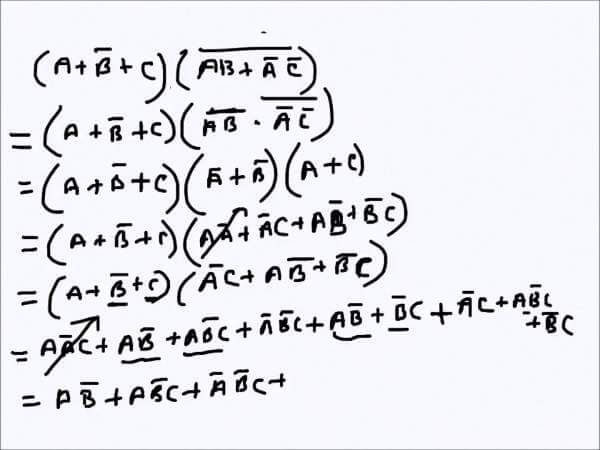 (A+B̅+C)(\overline{AB+A̅ C̅})
=(A+B̅+C)(\overline{AB} · \overline{A̅ C̅})
=(A+B̅+C)(A̅+B̅)(A+C)
=(A+B̅+C)(AA̅+A̅C+AB̅+B̅C)
=(A+B̅+C)(A̅C+AB̅+B̅C)
=AA̅C+AB̅+AB̅C+A̅B̅C+AB̅+B̅C+A̅C+AB̅C+B̅C
=AB̅+AB̅C+A̅B̅C+